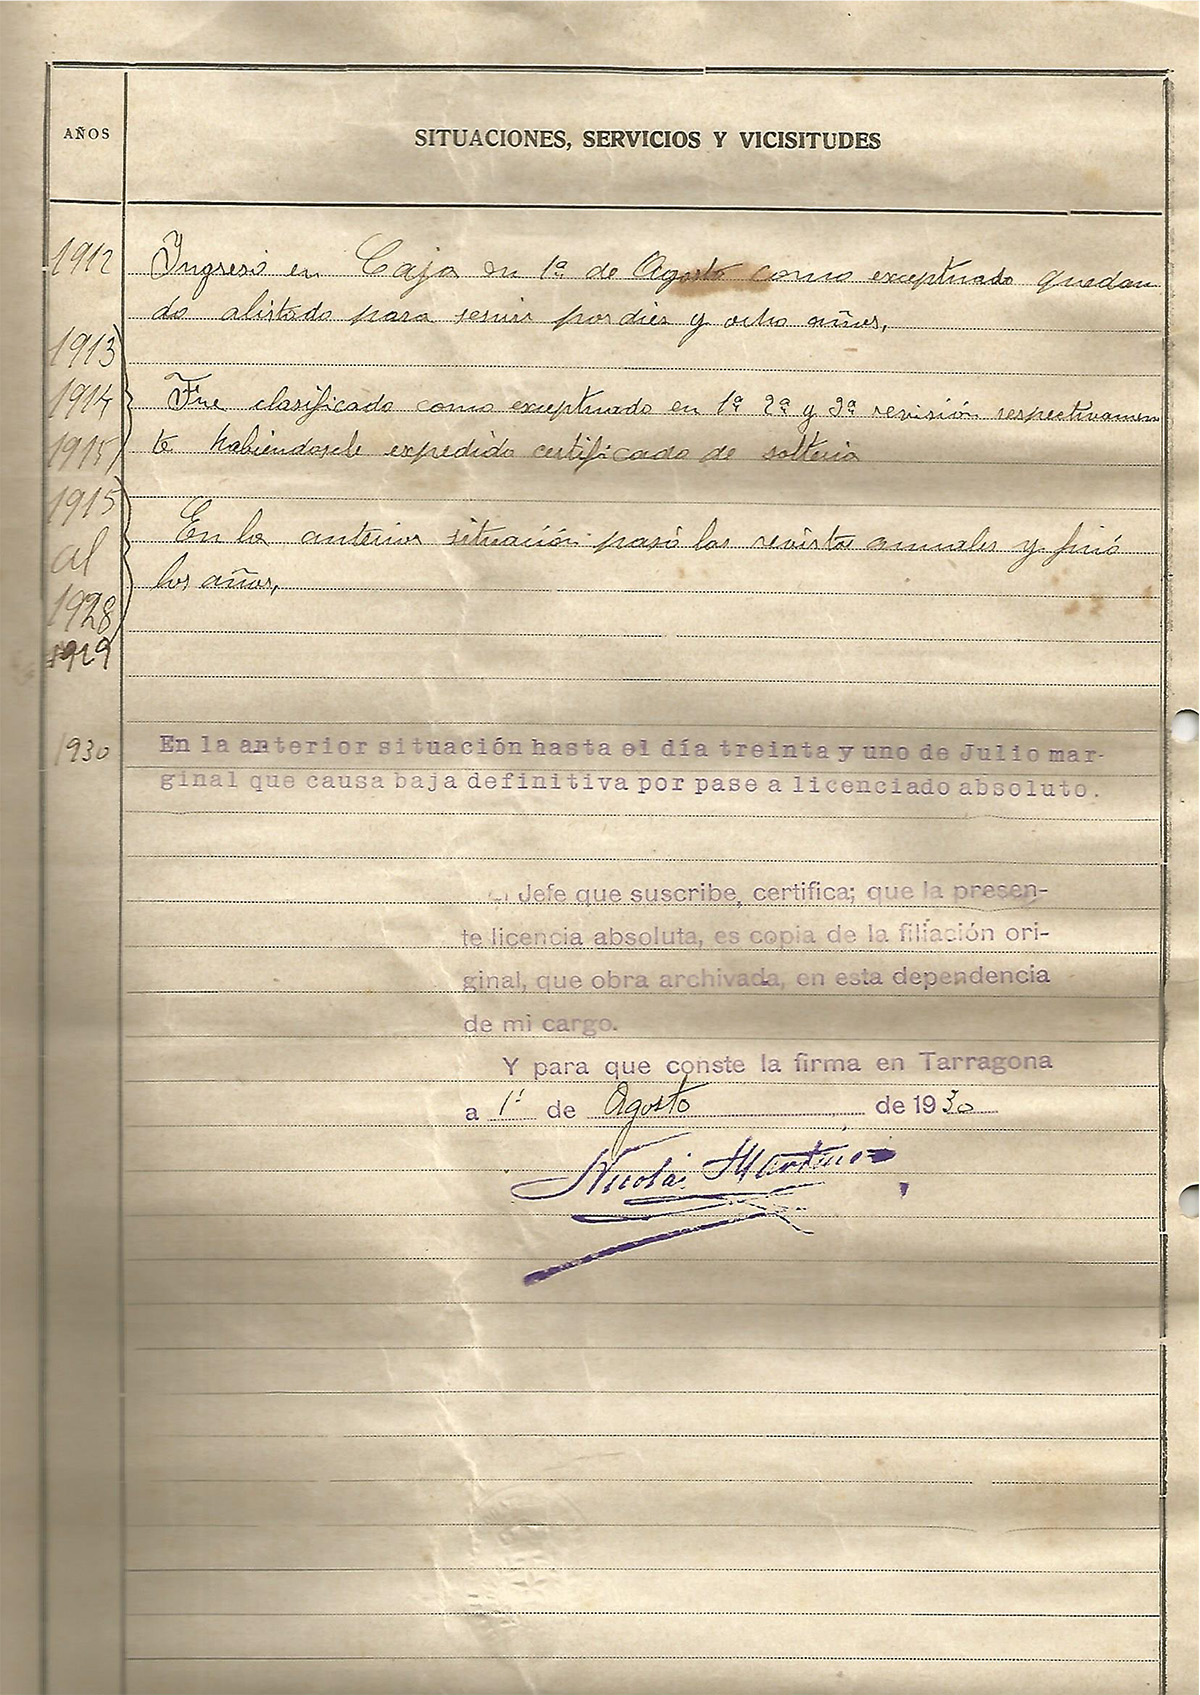 AÑOS
SITUACIONES, SERVICIOS Y VICISITUDES
1912 Ingresó en Caja en 1º de Agosto como exceptuado quedan
do alistado para servir por diez y ocho años,
1913
1914 Fue clasificado como exceptuado en 1ª 2ª y 3ª revisión respectivamen
1915 te habiéndosele expedido certificado de solteria
1915
al En la anterior situación pasó las revistas anuales y finó
los años,
1928
1929
1930 En la anterior situación hasta el día treinta y uno de Julio mar-
ginal que causa baja definitiva por pase a licenciado absoluto.
El Jefe que suscribe, certifica; que la presen-
te licencia absoluta, es copia de la filiación ori-
ginal, que obra archivada, en esta dependencia
de mi cargo.
Y para que conste la firma en Tarragona
a 1º de Agosto de 1930
Nicolás Martínez